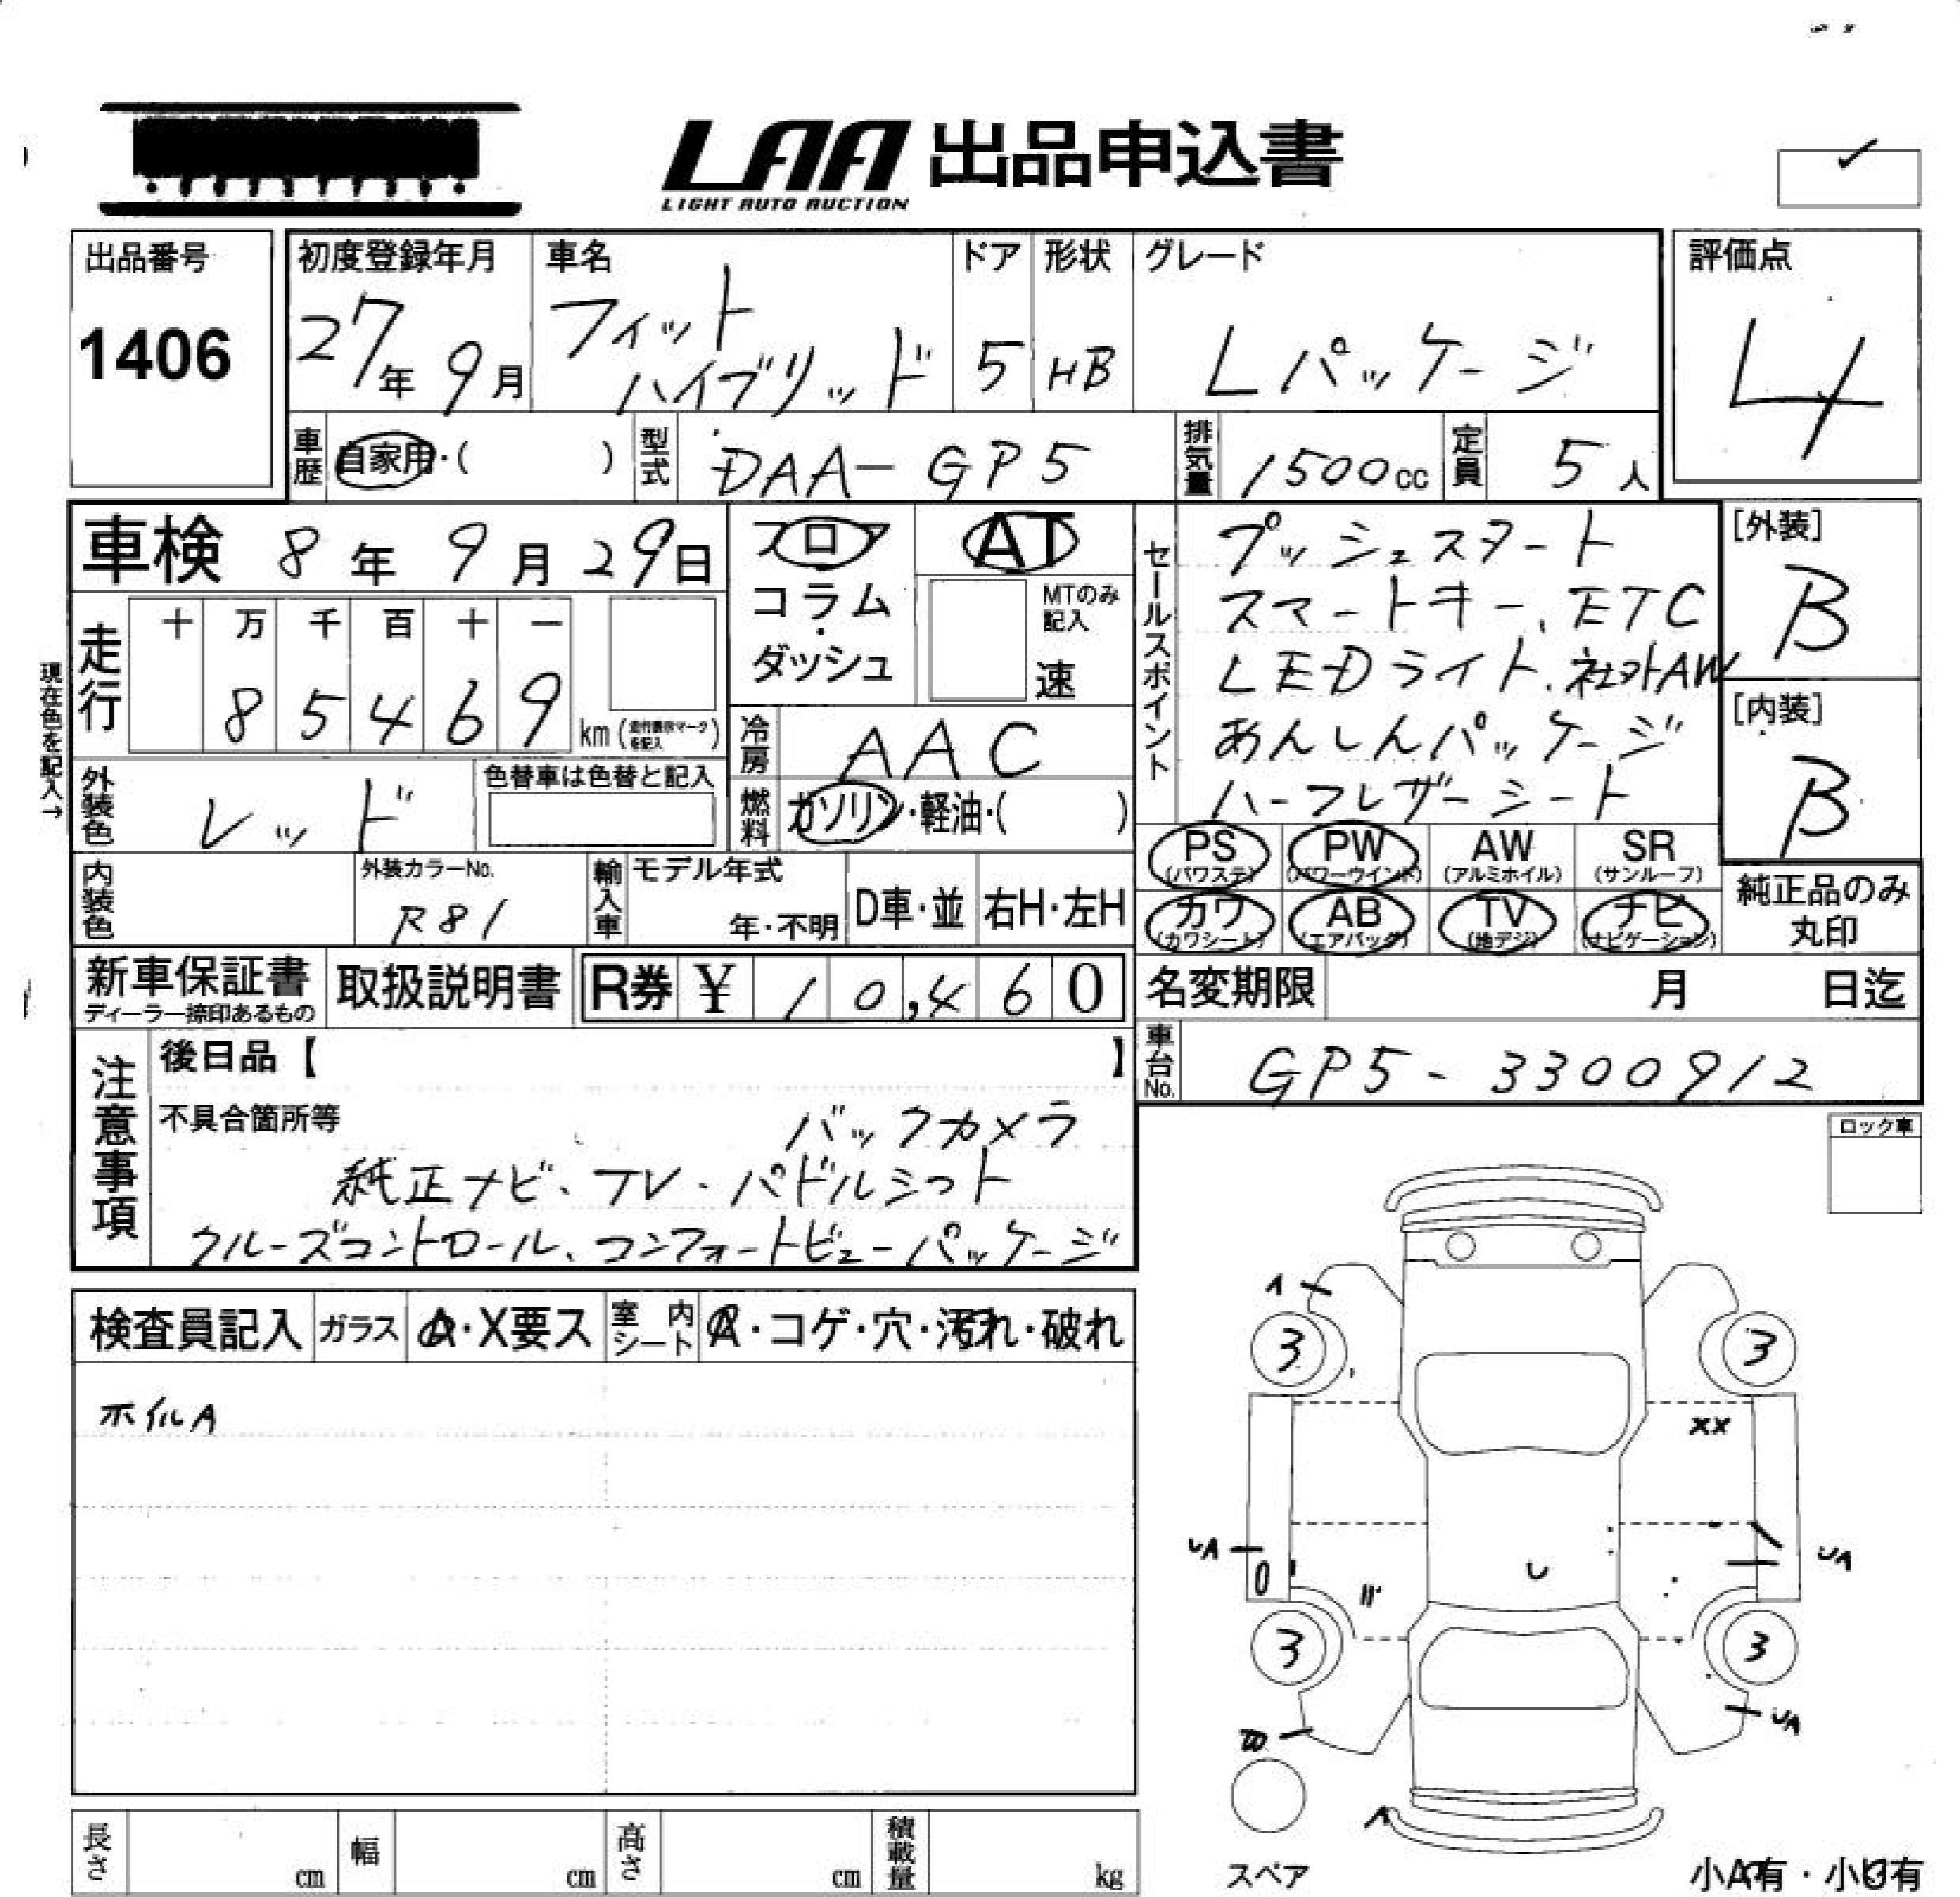 LAA 出品申込書
LIGHT AUTO AUCTION
出品番号
1406
初度登録年月
27年 9月
車名
フィット
ハイブリッド
ドア
5
形状
HB
グレード
Lパッケージ
評価点
4
車歴 自家用・( )
型式 DAA-GP5
排気量 1500cc
定員 5人
車検 8年 9月 29日
フロア
コラム
・
ダッシュ
AT
MTのみ
記入
速
現在色を記入→
走行
十 万 千 百 十 一
8 5 4 6 9
km (走行表示マークを記入)
冷房 AAC
燃料 ガソリン・軽油・( )
外装色 レッド
色替車は色替と記入
内装色
外装カラーNo.
R81
輸入車
モデル年式
年・不明
D車・並
右H・左H
セールスポイント
プッシュスタート
スマートキー、ETC
LEDライト、社外AW
あんしんパッケージ
ハーフレザーシート
[外装]
B
[内装]
B
PS (パワステ)
PW (パワーウインド)
AW (アルミホイル)
SR (サンルーフ)
カワ (カワシート)
AB (エアバッグ)
TV (地デジ)
ナビ (ナビゲーション)
純正品のみ
丸印
新車保証書
ディーラー捺印あるもの
取扱説明書
R券 ¥ 10,460
名変期限 月 日迄
車台No. GP5-3300912
注意事項
後日品【 】
不具合箇所等
バックカメラ
純正ナビ、TV・パドルシフト
クルーズコントロール、コンフォートビューパッケージ
ロック車
検査員記入
ガラス A・X要ス
室内シート A・コゲ・穴・汚れ・破れ
ホイルA
A
3
3
XX
UA
U
UA
3
3
UA
A
スペア
小A有・小U有
長さ cm
幅 cm
高さ cm
積載量 kg